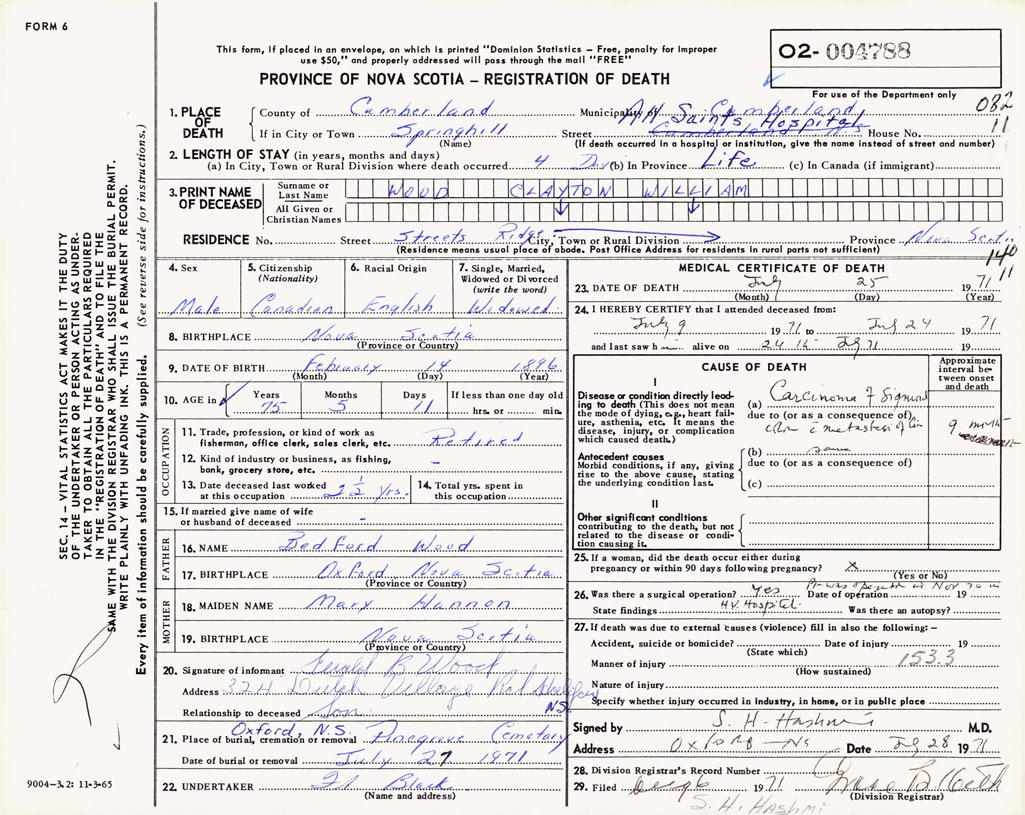 FORM 6
This form, if placed in an envelope, on which is printed "Dominion Statistics – Free, penalty for improper
use $50," and properly addressed will pass through the mail "FREE"
PROVINCE OF NOVA SCOTIA – REGISTRATION OF DEATH
02- 004788
For use of the Department only
082
11
1. PLACE OF DEATH
County of Cumberland Municipality Cumberland
If in City or Town Springhill Street All Saints Hospital House No.
(Name) (If death occurred in a hospital or institution, give the name instead of street and number)
2. LENGTH OF STAY (in years, months and days)
(a) In City, Town or Rural Division where death occurred 4 Days (b) In Province Life (c) In Canada (if immigrant)
3. PRINT NAME OF DECEASED
Surname or Last Name WOOD CLAYTON WILLIAM
All Given or Christian Names
RESIDENCE No. Street Streets Ridge City, Town or Rural Division Province Nova Scotia
(Residence means usual place of abode. Post Office Address for residents in rural parts not sufficient)
140
11
4. Sex Male
5. Citizenship (Nationality) Canadian
6. Racial Origin English
7. Single, Married, Widowed or Divorced (write the word) Widowed
8. BIRTHPLACE Nova Scotia
(Province or Country)
9. DATE OF BIRTH February 14 1896
(Month) (Day) (Year)
10. AGE in Years 75 Months 5 Days 11 If less than one day old hrs. or min.
OCCUPATION
11. Trade, profession, or kind of work as fisherman, office clerk, sales clerk, etc. Retired
12. Kind of industry or business, as fishing, bank, grocery store, etc. –
13. Date deceased last worked at this occupation 2½ yrs. 14. Total yrs. spent in this occupation
15. If married give name of wife or husband of deceased -
FATHER
16. NAME Bedford Wood
17. BIRTHPLACE Oxford Nova Scotia
(Province or Country)
MOTHER
18. MAIDEN NAME Mary Hannon
19. BIRTHPLACE Nova Scotia
(Province or Country)
20. Signature of informant Gerald B Wood
Address 324 Dutch Village Rd Halifax NS
Relationship to deceased Son
21. Place of burial, cremation or removal Oxford, N.S. Pinegrove Cemetary
Date of burial or removal July 27 1971
22. UNDERTAKER Black
(Name and address)
MEDICAL CERTIFICATE OF DEATH
23. DATE OF DEATH July 25 1971
(Month) (Day) (Year)
24. I HEREBY CERTIFY that I attended deceased from:
July 9 1971 to July 24 1971
and last saw him alive on 24th July 71 19
CAUSE OF DEATH
Approximate interval between onset and death
I
Disease or condition directly leading to death (This does not mean the mode of dying, e.g., heart failure, asthenia, etc. It means the disease, injury, or complication which caused death.)
(a) Carcinoma of Sigmoid
due to (or as a consequence of)
colon c metastasis of
9 month
Antecedent causes
Morbid conditions, if any, giving rise to the above cause, stating the underlying condition last.
(b) same
due to (or as a consequence of)
(c)
II
Other significant conditions contributing to the death, but not related to the disease or condition causing it.
25. If a woman, did the death occur either during pregnancy or within 90 days following pregnancy? X
(Yes or No)
26. Was there a surgical operation? yes Date of operation Nov 70 19
State findings H.V. Hospital. Was there an autopsy?
27. If death was due to external causes (violence) fill in also the following: –
Accident, suicide or homicide? Date of injury 19
(State which)
153.3
Manner of injury
(How sustained)
Nature of injury
Specify whether injury occurred in industry, in home, or in public place
Signed by S. H. Hashmi M.D.
Address Oxford – NS Date July 28 1971
28. Division Registrar's Record Number
29. Filed Aug 6 1971
(Division Registrar)
S. H. Hashmi
SEC. 14 – VITAL STATISTICS ACT MAKES IT THE DUTY
OF THE UNDERTAKER OR PERSON ACTING AS UNDER-
TAKER TO OBTAIN ALL THE PARTICULARS REQUIRED
IN THE "REGISTRATION OF DEATH" AND TO FILE THE
SAME WITH THE DIVISION REGISTRAR WHO SHALL ISSUE THE BURIAL PERMIT.
WRITE PLAINLY WITH UNFADING INK. THIS IS A PERMANENT RECORD.
Every item of information should be carefully supplied. (See reverse side for instructions.)
9004-3.2: 11-3-65